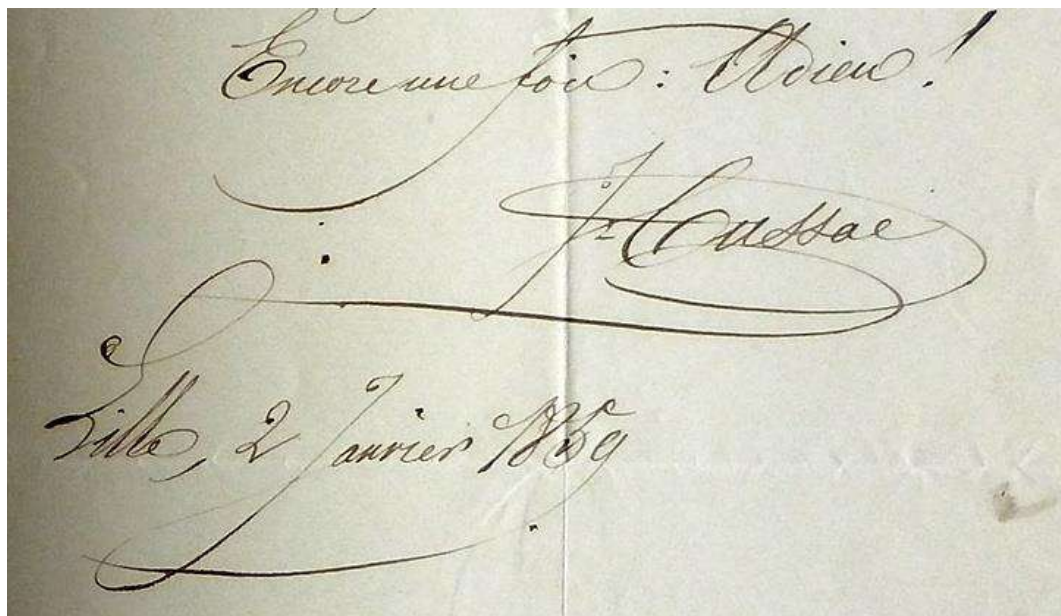 Encore une fois : Adieu !
J. Cussac
Lille, 2 Janvier 1859